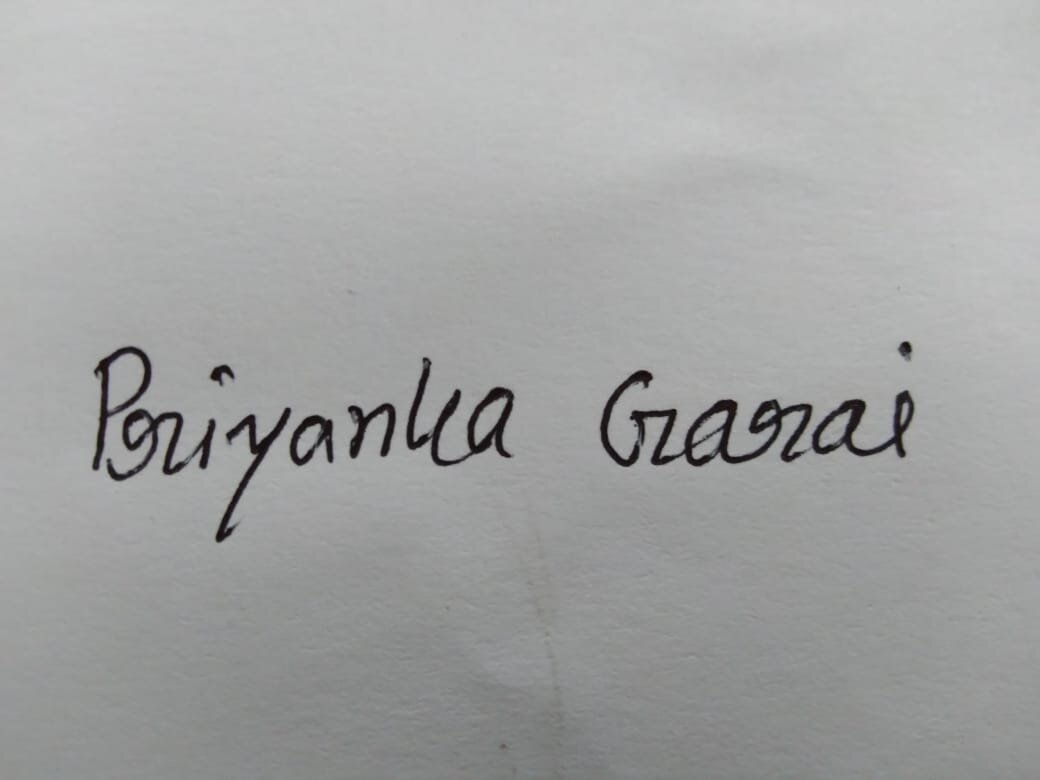 Priyanka Garai